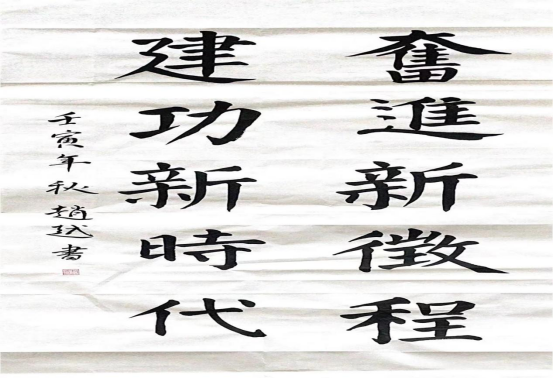 奮進新徵程
建功新時代
壬寅年秋趙珷書